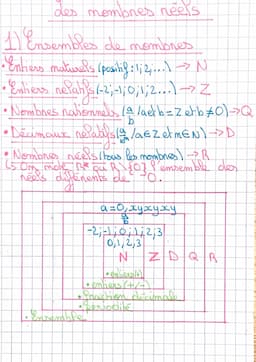 Les nombres réels
1) Ensembles de nombres
• Entiers naturels (positif : 1; 2; ...) → N
• Entiers relatifs (-2; -1; 0; 1; 2...) → Z
• Nombres rationnels (a/b / a et b = Z et b ≠ 0) → Q
• Décimaux relatifs (/ a ∈ Z et n ∈ N) → D
• Nombres réels (tous les nombres) → R
↳ On note R* ou R \ {0} l'ensemble des
réels différents de 0.
a = 0, xyxyxy
a/b
-2; -1; 0; 1; 2; 3
0, 1, 2, 3
N Z D Q R
• entiers (+)
• entiers (+/-)
• fraction décimale
• périodicité
• Ensemble